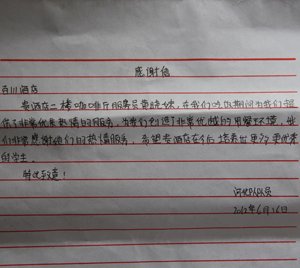 感谢信
百川酒店
贵酒店二楼咖啡厅服务员袁晓, 在我们吃饭期间为我们提
供了非常优质热情的服务, 为我们创造了非常优越的用餐环境, 我
们非常感谢她们的热情服务, 希望贵酒店在今后培养出更多更优秀
的学生。
特此致意!
河北队队员
2012年6月16日